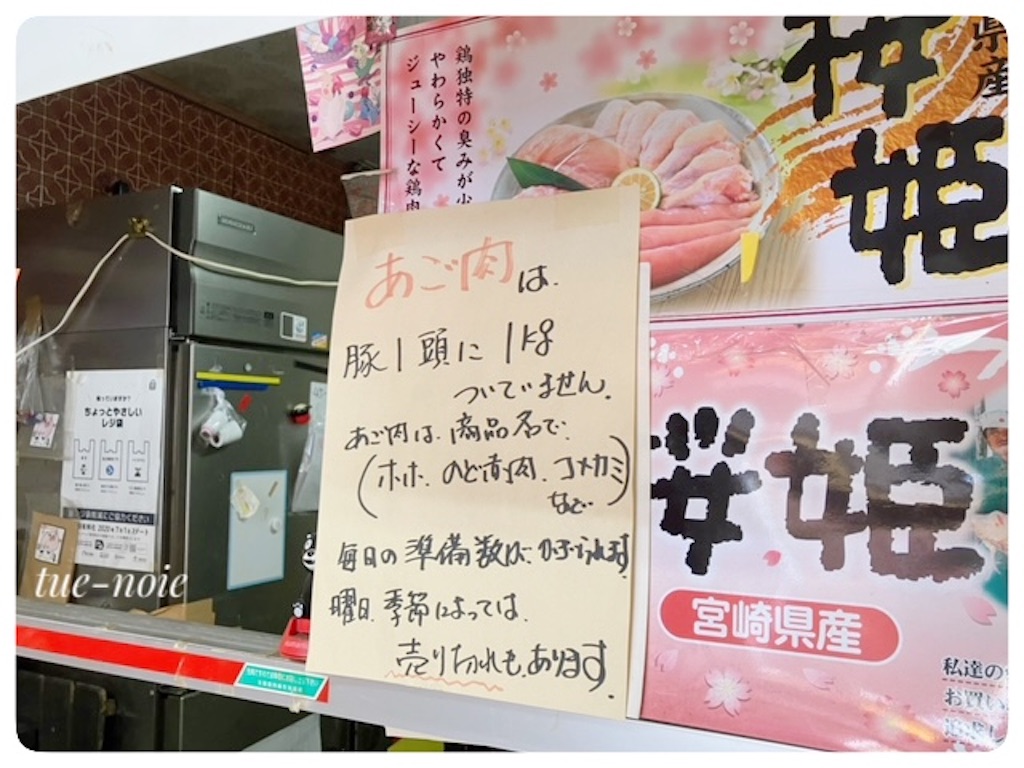 鶏独特の臭みが少
やわらかくて
ジューシーな鶏肉
県産
桜姫
あご肉は、
豚1頭に1kg
ついていません。
あご肉は、商品名で、
(ホホ、のど肉、コメカミ
など)
毎日の準備数は、かぎられます。
曜日、季節によっては、
売り切れも、あります。
桜姫
宮崎県産
私達の
お買い
追求し
ちょっとやさしい
レジ袋
tue-noie